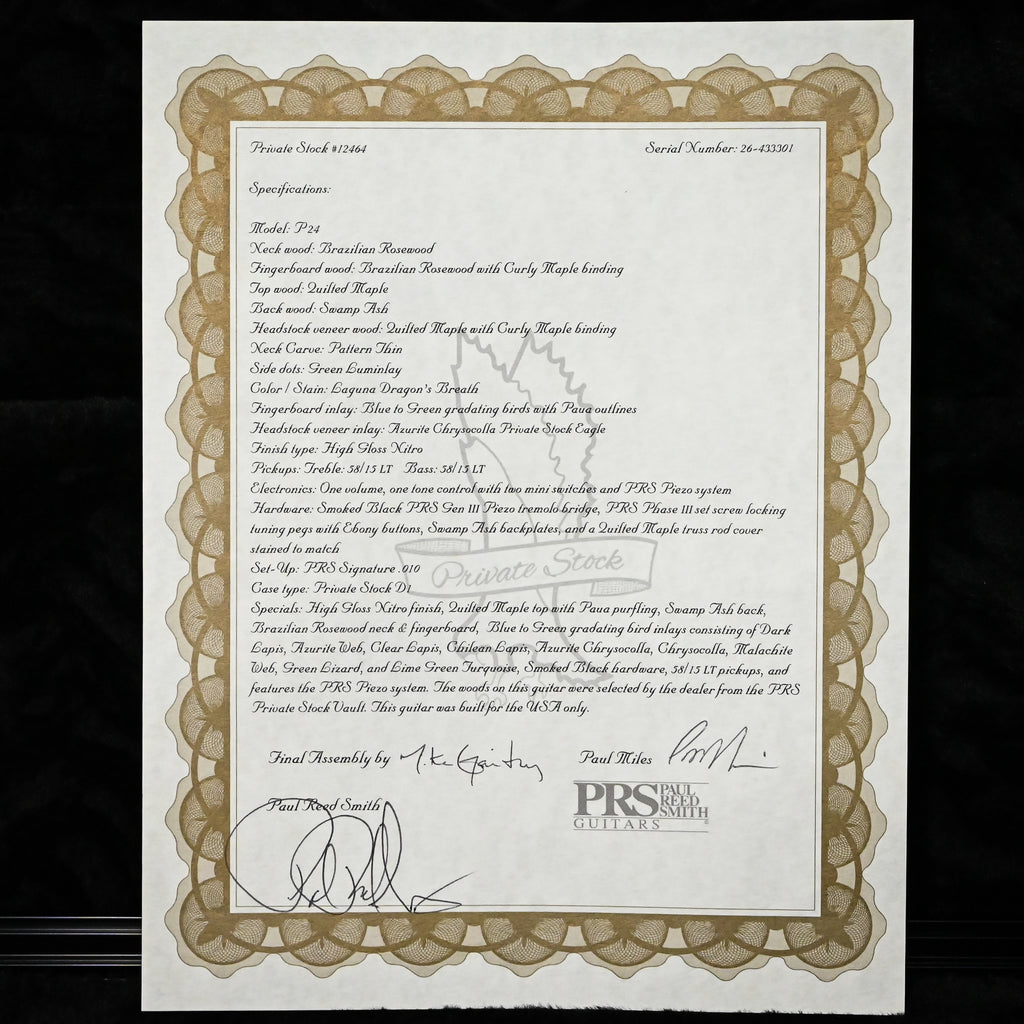 Private Stock #12464
Serial Number: 26-433301
Specifications:
Model: P24
Neck wood: Brazilian Rosewood
Fingerboard wood: Brazilian Rosewood with Curly Maple binding
Top wood: Quilted Maple
Back wood: Swamp Ash
Headstock veneer wood: Quilted Maple with Curly Maple binding
Neck Carve: Pattern Thin
Side dots: Green Luminlay
Color / Stain: Laguna Dragon's Breath
Fingerboard inlay: Blue to Green gradating birds with Paua outlines
Headstock veneer inlay: Azurite Chrysocolla Private Stock Eagle
Finish type: High Gloss Nitro
Pickups: Treble: 58/15 LT Bass: 58/15 LT
Electronics: One volume, one tone control with two mini switches and PRS Piezo system
Hardware: Smoked Black PRS Gen III Piezo tremolo bridge, PRS Phase III set screw locking
tuning pegs with Ebony buttons, Swamp Ash backplates, and a Quilted Maple truss rod cover
stained to match
Set-Up: PRS Signature .010
Private Stock
Case type: Private Stock D1
Specials: High Gloss Nitro finish, Quilted Maple top with Paua purfling, Swamp Ash back,
Brazilian Rosewood neck & fingerboard, Blue to Green gradating bird inlays consisting of Dark
Lapis, Azurite Web, Clear Lapis, Chilean Lapis, Azurite Chrysocolla, Chrysocolla, Malachite
Web, Green Lizard, and Lime Green Turquoise, Smoked Black hardware, 58/15 LT pickups, and
features the PRS Piezo system. The woods on this guitar were selected by the dealer from the PRS
Private Stock Vault. This guitar was built for the USA only.
Final Assembly by
Paul Miles
Paul Reed Smith
PRS PAUL
REED
SMITH
GUITARS